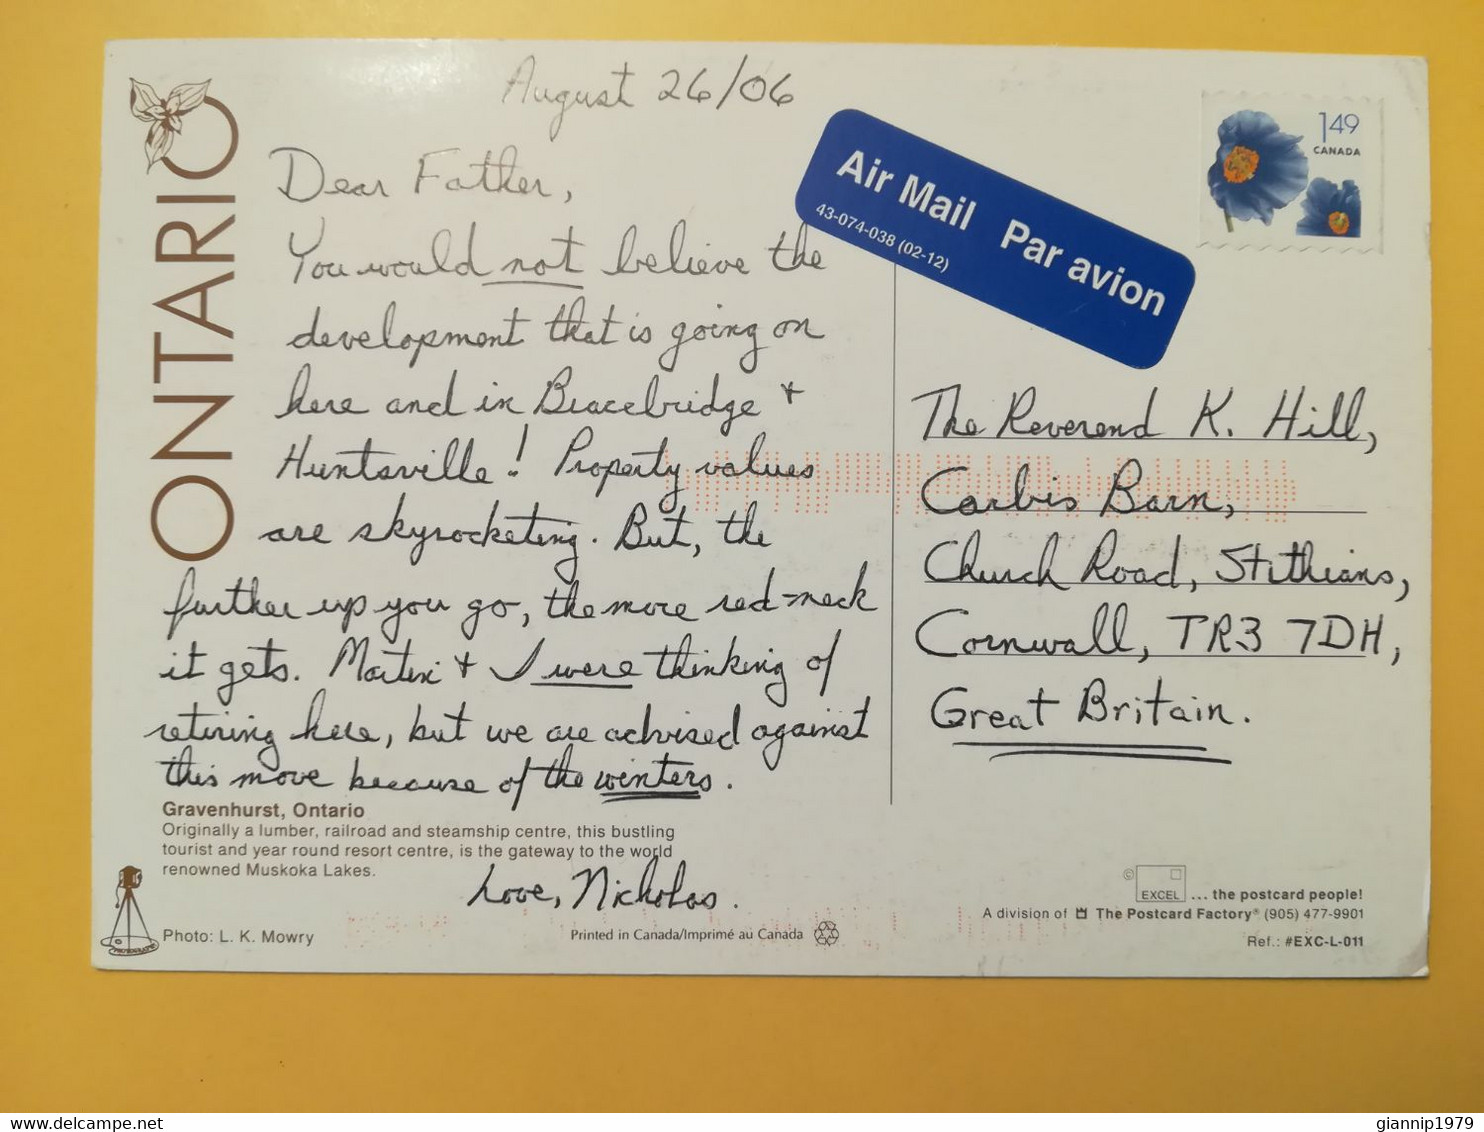 ONTARIO
August 26/06
Dear Father,
You would not believe the
development that is going on
here and in Bracebridge +
Huntsville! Property values
are skyrocketing. But, the
further up you go, the more red-neck
it gets. Martin + I were thinking of
retiring here, but we are advised against
this move because of the winters.
Love, Nicholas.
Gravenhurst, Ontario
Originally a lumber, railroad and steamship centre, this bustling
tourist and year round resort centre, is the gateway to the world
renowned Muskoka Lakes.
Photo: L. K. Mowry
Printed in Canada/Imprimé au Canada
Air Mail Par avion
43-074-038 (02-12)
1.49
CANADA
The Reverend K. Hill,
Carbis Barn,
Church Road, Stithians,
Cornwall, TR3 7DH,
Great Britain.
© EXCEL ... the postcard people!
A division of The Postcard Factory® (905) 477-9901
Ref.: #EXC-L-011
giannip1979